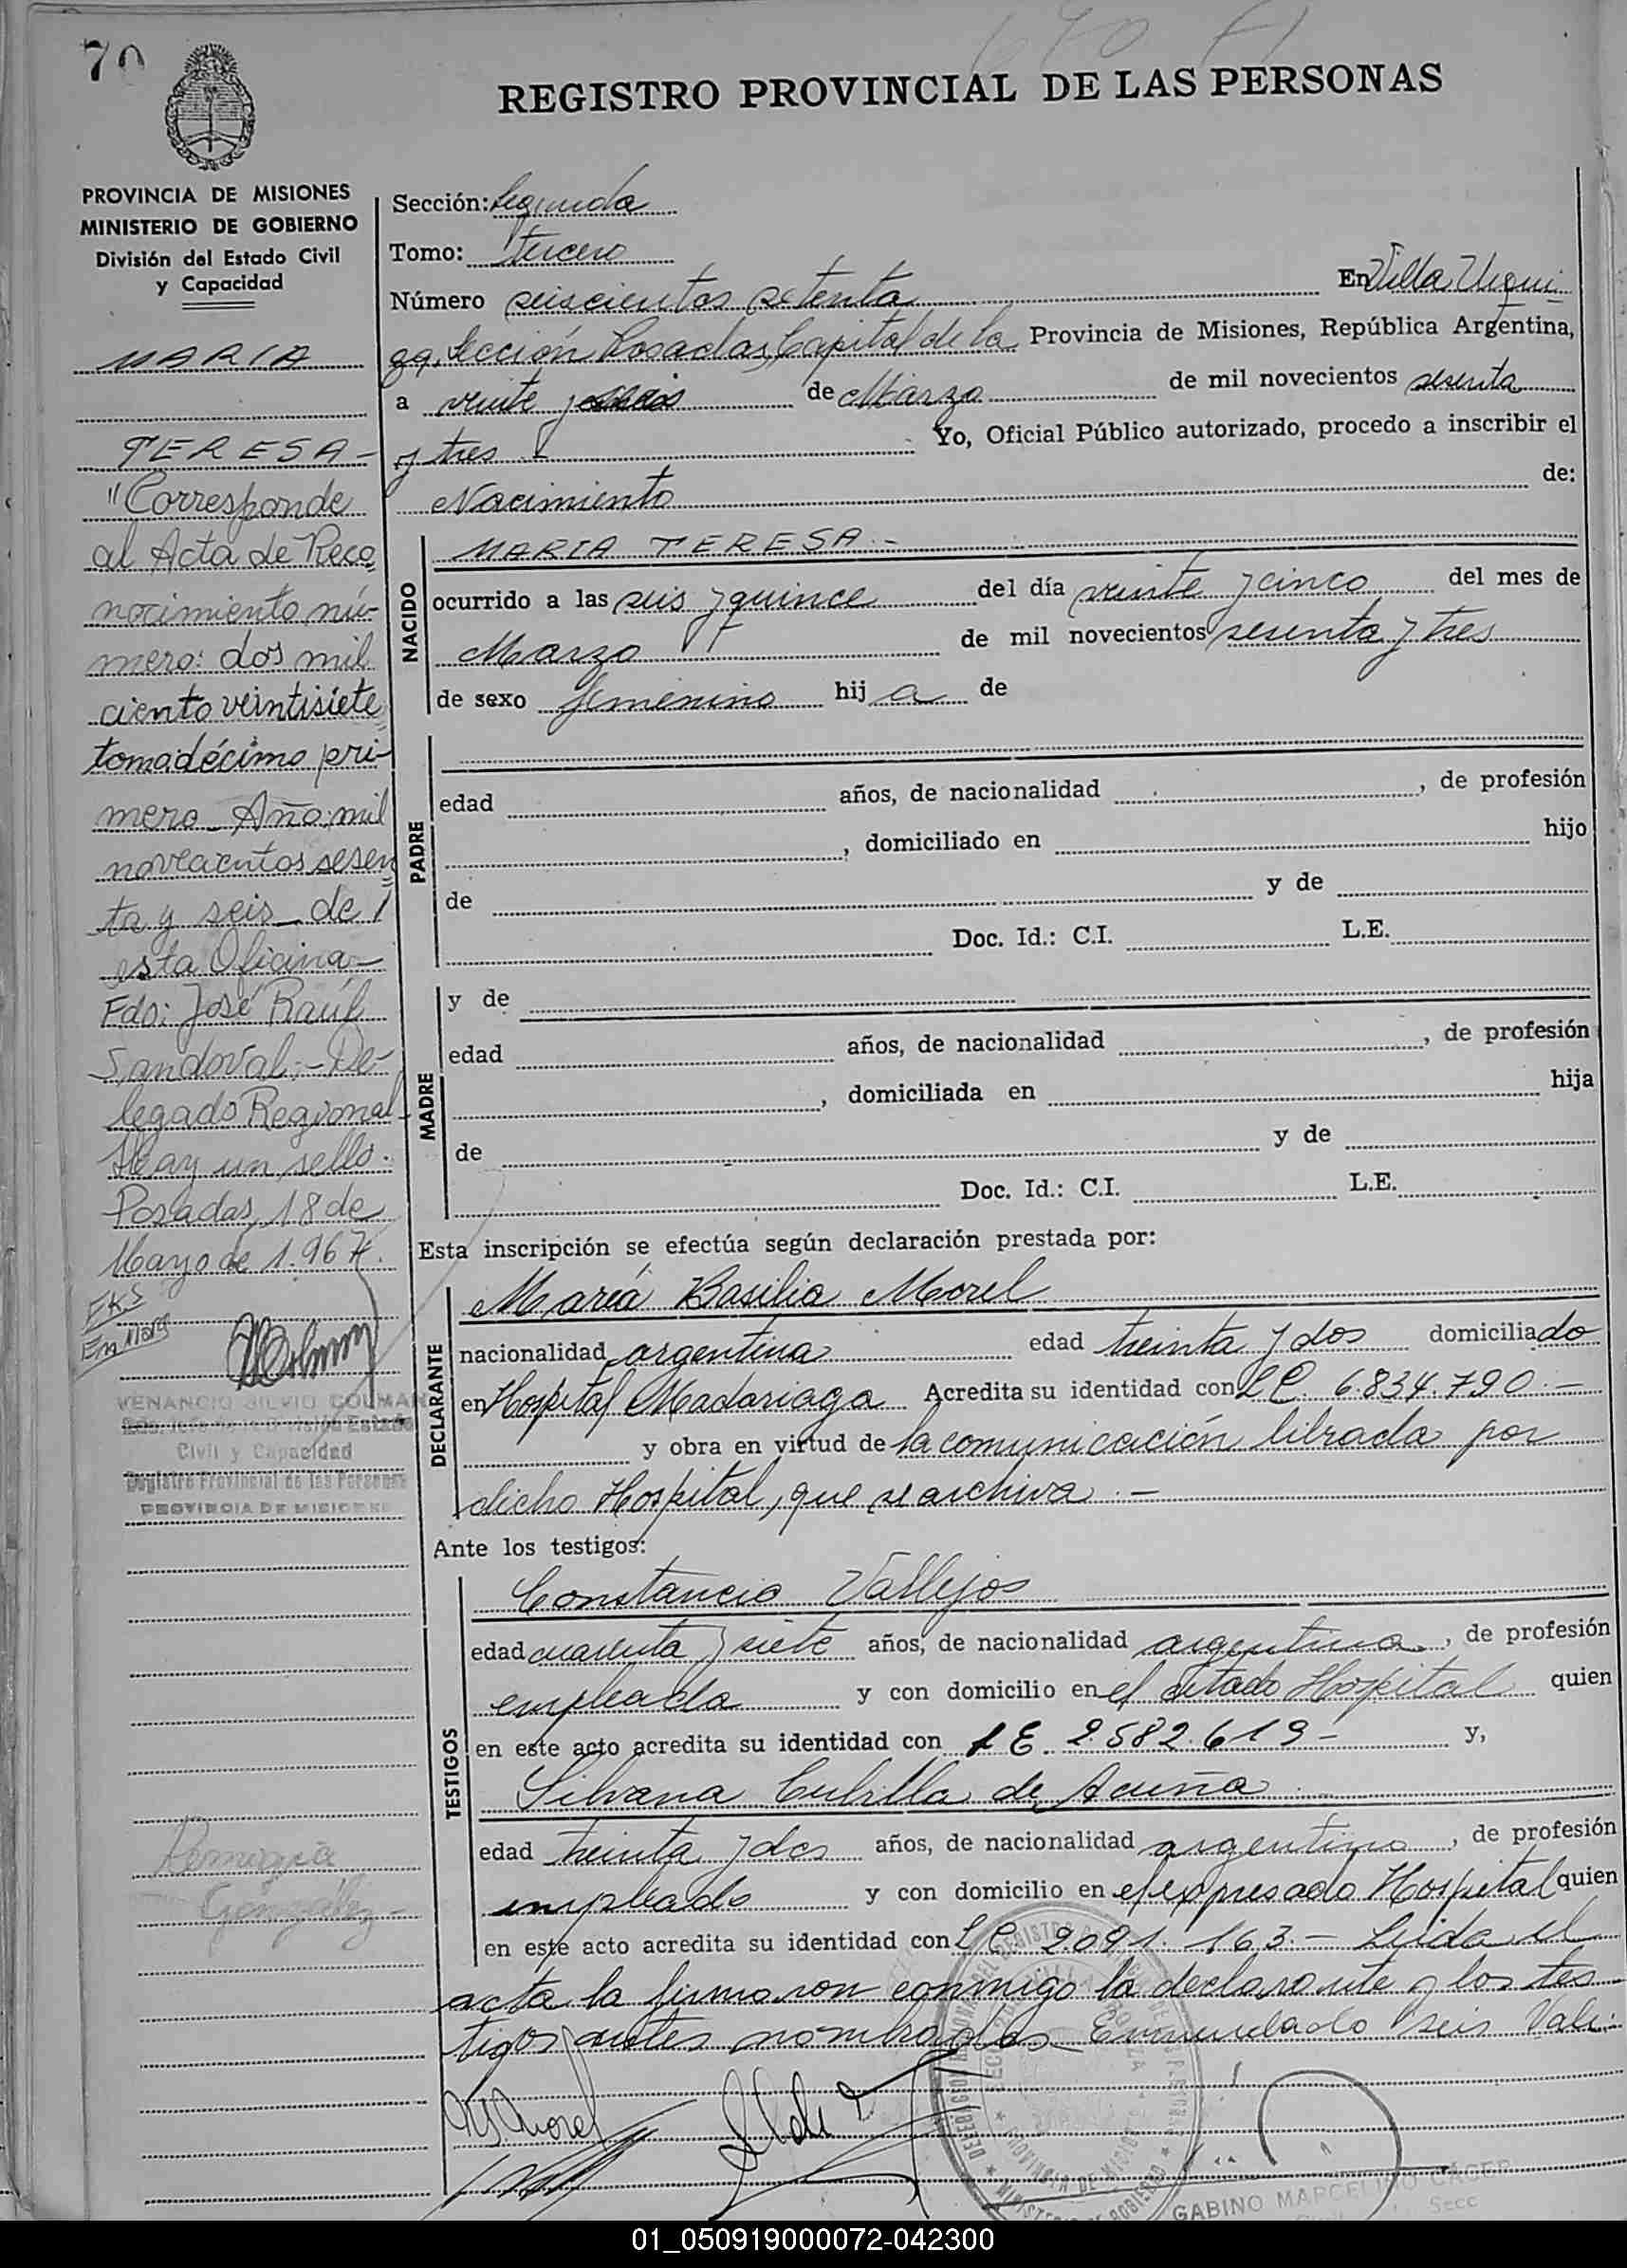 70
670
REGISTRO PROVINCIAL DE LAS PERSONAS
PROVINCIA DE MISIONES
MINISTERIO DE GOBIERNO
División del Estado Civil
y Capacidad
MARIA
TERESA -
"Corresponde
al Acta de Reco
nocimiento nú-
mero: dos mil
ciento veintisiete
tomo décimo pri-
mero - Año: mil
novecientos sesen
ta y seis - de
esta Oficina -
Fdo: José Raúl
Sandoval - De-
legado Regional -
Hay un sello.
Posadas, 18 de
Mayo de 1.967.
VENANCIO SILVIO COLMAN
Civil y Capacidad
Registro Provincial de las Personas
PROVINCIA DE MISIONES
Remigia
González -
Sección: Segunda
Tomo: Tercero
Número seiscientos setenta En Villa Urqui
za, Sección Posadas, Capital de la Provincia de Misiones, República Argentina,
a veinte y seis de Marzo de mil novecientos sesenta
y tres Yo, Oficial Público autorizado, procedo a inscribir el
Nacimiento de:
NACIDO
MARIA TERESA -
ocurrido a las seis y quince del día veinte y cinco del mes de
Marzo de mil novecientos sesenta y tres
de sexo femenino hij a de
PADRE
edad años, de nacionalidad , de profesión
, domiciliado en hijo
de y de
Doc. Id.: C.I. L.E.
MADRE
y de
edad años, de nacionalidad , de profesión
, domiciliada en hija
de y de
Doc. Id.: C.I. L.E.
Esta inscripción se efectúa según declaración prestada por:
DECLARANTE
María Basilia Morel
nacionalidad argentina edad treinta y dos domiciliado
en Hospital Madariaga Acredita su identidad con L.C. 6.834.790 -
y obra en virtud de la comunicación librada por
dicho Hospital, que se archiva -
Ante los testigos:
TESTIGOS
Constancio Vallejos
edad cuarenta y siete años, de nacionalidad argentina, de profesión
empleada y con domicilio en el citado Hospital quien
en este acto acredita su identidad con L E 2.582.619 - y,
Silvana Cubilla de Acuña
edad treinta y dos años, de nacionalidad argentina, de profesión
empleada y con domicilio en el expresado Hospital quien
en este acto acredita su identidad con L C 2.091.163 - Leida el
acta la firmaron conmigo la declarante y los tes
tigos antes nombrados - Enmendado seis Vale -
M B Morel
GABINO MARCELINO CACER
Secc
01_050919000072-042300